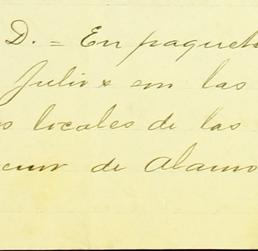 D. = En paquete
Julio x en las
s locales de las
de Alamo